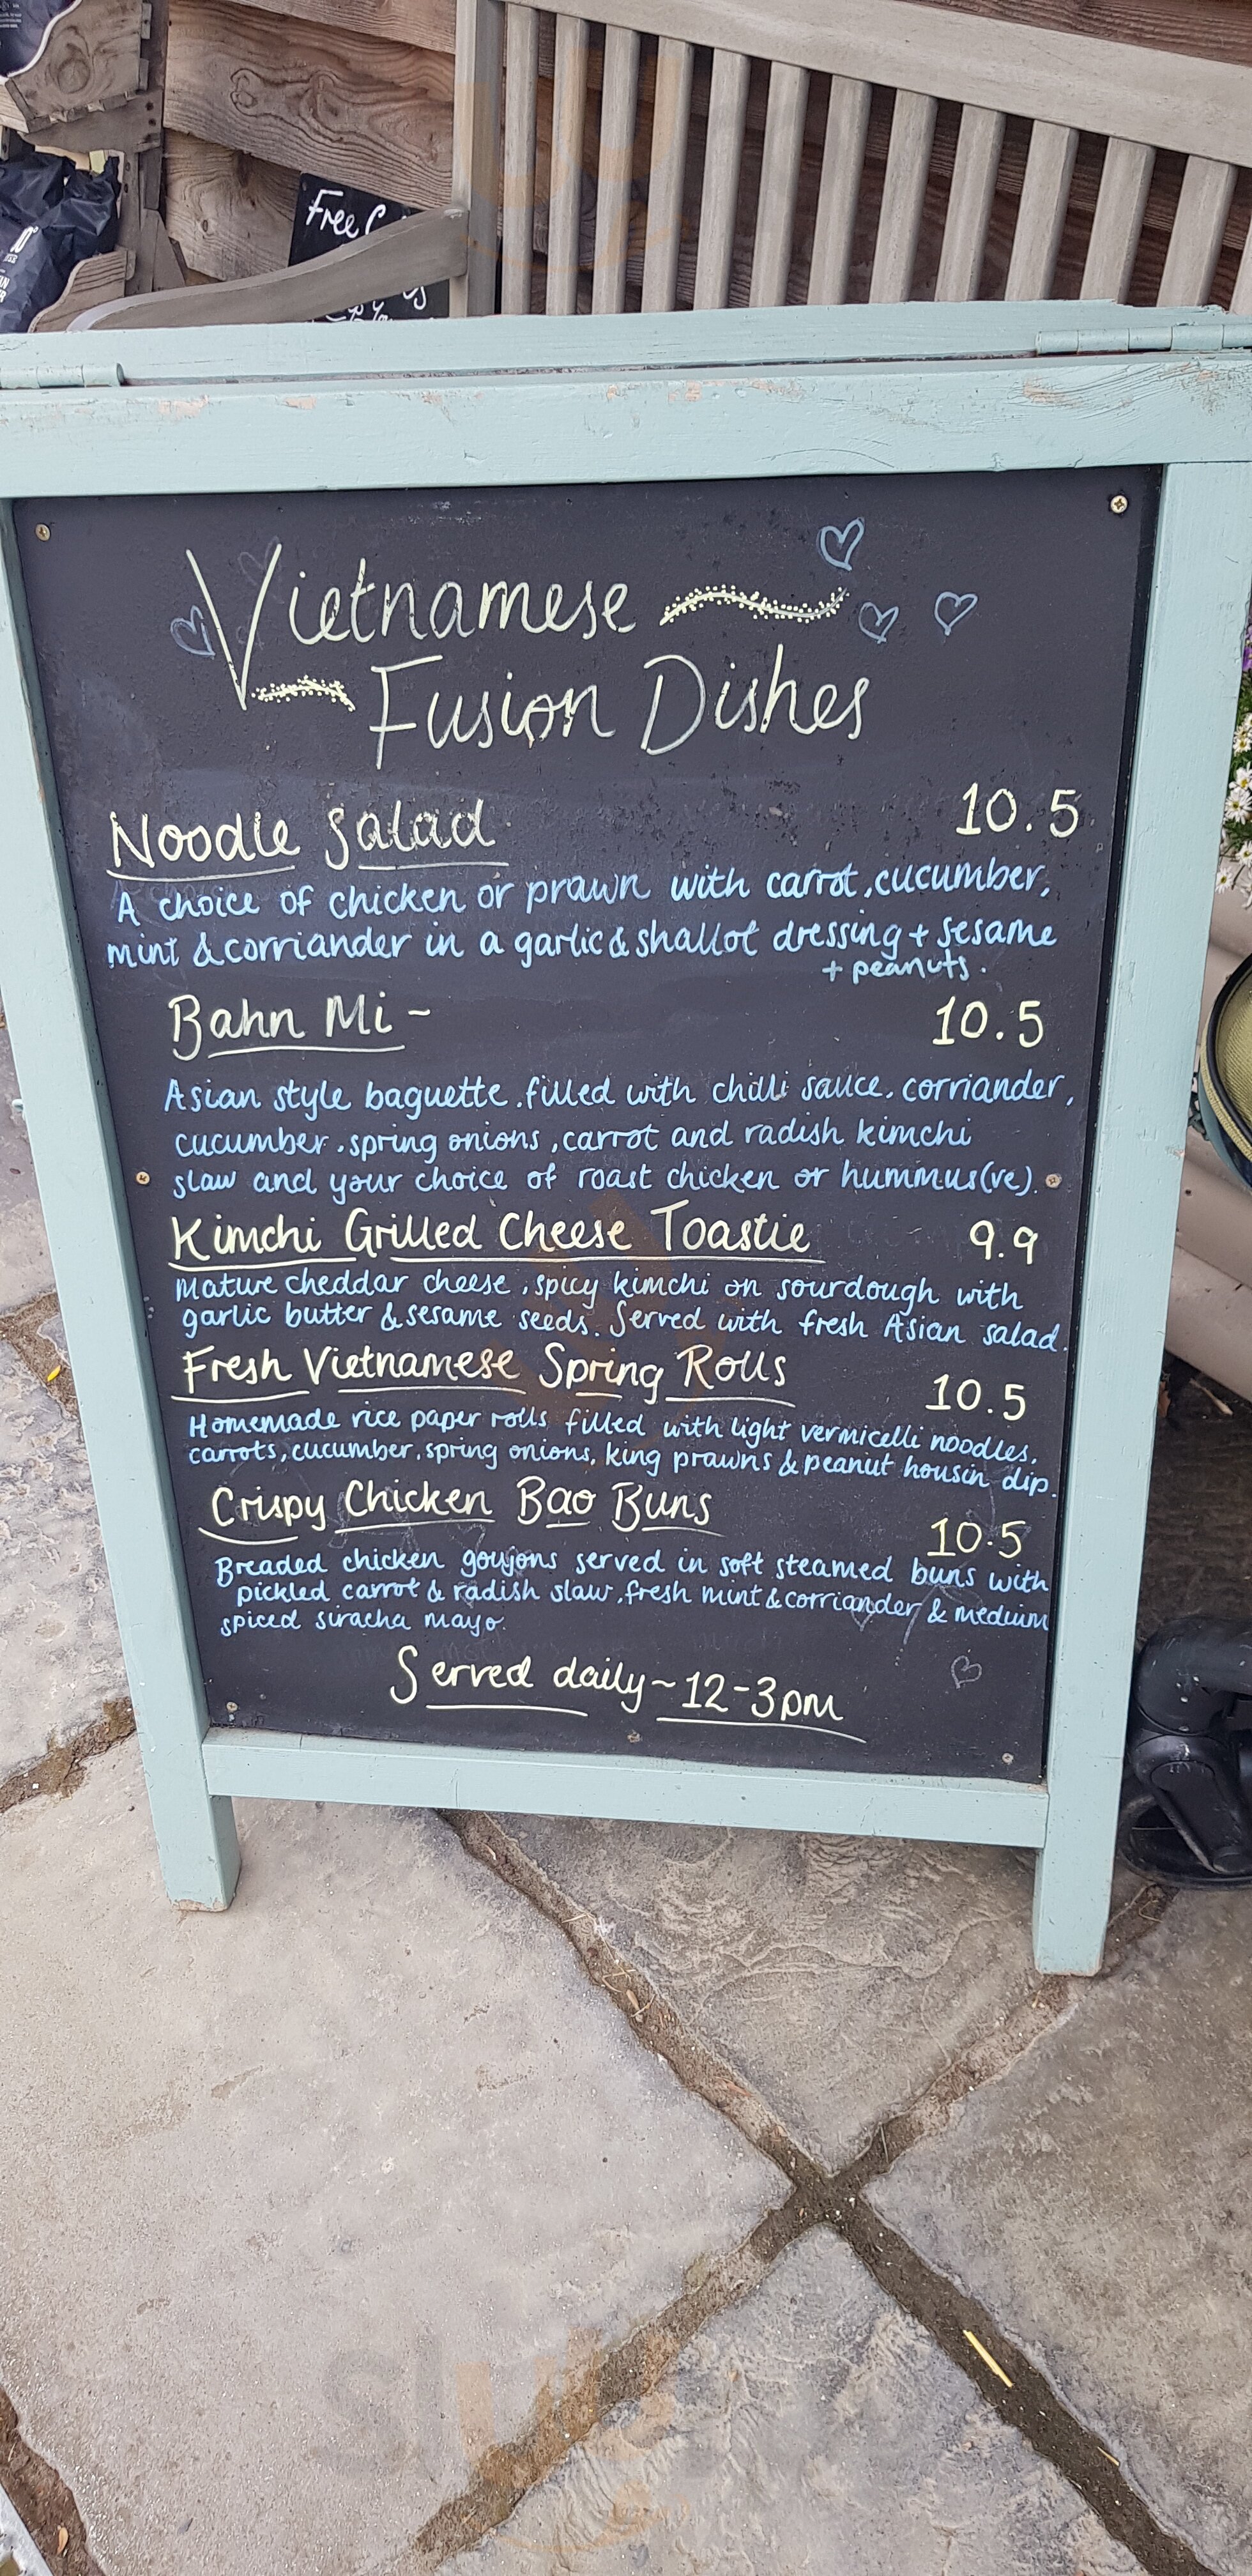 Free
Vietnamese
Fusion Dishes
Noodle Salad 10.5
A choice of chicken or prawn with carrot, cucumber,
mint & corriander in a garlic & shallot dressing + sesame
+ peanuts.
Bahn Mi - 10.5
Asian style baguette, filled with chilli sauce, corriander,
cucumber, spring onions, carrot and radish kimchi
slaw and your choice of roast chicken or hummus (ve).
Kimchi Grilled Cheese Toastie 9.9
Mature cheddar cheese, spicy kimchi on sourdough with
garlic butter & sesame seeds. Served with fresh Asian salad.
Fresh Vietnamese Spring Rolls 10.5
Homemade rice paper rolls filled with light vermicelli noodles,
carrots, cucumber, spring onions, king prawns & peanut housin dip.
Crispy Chicken Bao Buns 10.5
Breaded chicken goujons served in soft steamed buns with
pickled carrot & radish slaw, fresh mint & corriander & medium
spiced siracha mayo.
Served daily ~ 12-3pm